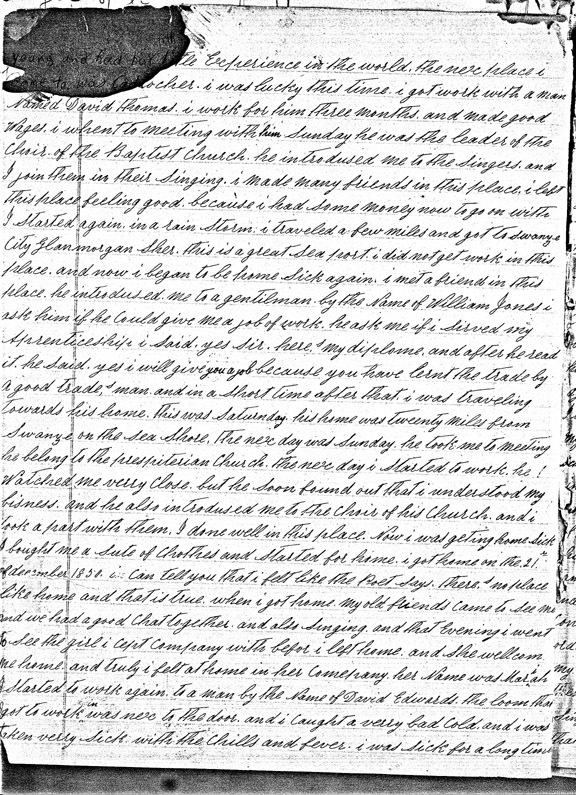 young and had but little Experience in the world. the nex place i
Came to Cattlocher. i was lucky this time. i got work with a man
Named David thomas. i work for him three months. and made good
Wages. i whent to meeting with him Sunday he was the leader of the
Choir. of the Baptist Church. he introdused me to the Singers. and
I join them in their Singing. i made many friends in this place. i left
this place feeling good. because i had some money now to go on with
I Started again. in a rain Storm. i traveled a few miles and got to Swanze
City Glanmorgan Sher. this is a great Sea port. i did not get work in this
place. and now i began to be home Sick again. i met a friend in this
place. he introdused. me to a gentilman. by the Name of William Jones i
ask him if he Could give me a job of work. he ask me if i Sirved my
Aprenticeship i Said. yes Sir. here,s my diplome. and after he read
it. he Said. yes i will give you a job because you have lernt the trade by
a good trade,s man. and in a Short time after that. i was traveling
towards his home. this was Saturnday his home was twenty miles from
Swanze on the Sea Shore, the nex day was Sunday. he took me to meeting
he belong to the prespiterian Church. the nex day i Started to work. he
Watched me verry Close. but he Soon found out that i understood my
bisness. and he also introdused me to the Choir of his Church. and i
took a part with them. I done well in this place. Now i was geting home Sick
I bought me a Sute of Chothes and Started for home. i got home on the 21.st
of december 1850. i Can tell you that i felt like the Poet Says. there,s no place
like home and that is true. when i got home. my old friends Came to See me
and we had a good Chat together. and also Singing. and that Evening i went
to See the girl i Cept Company with befor i left home. and She wellcom
me home. and truly i felt at home in her Comepany. her Name was Mariah
I Started to work again. to a man by the Name of David Edwards. the loom that
i got to work in was nex to the door. and i Caught a verry bad Cold. and i was
taken verry Sick. with the Chills and fever. i was Sick for a long time